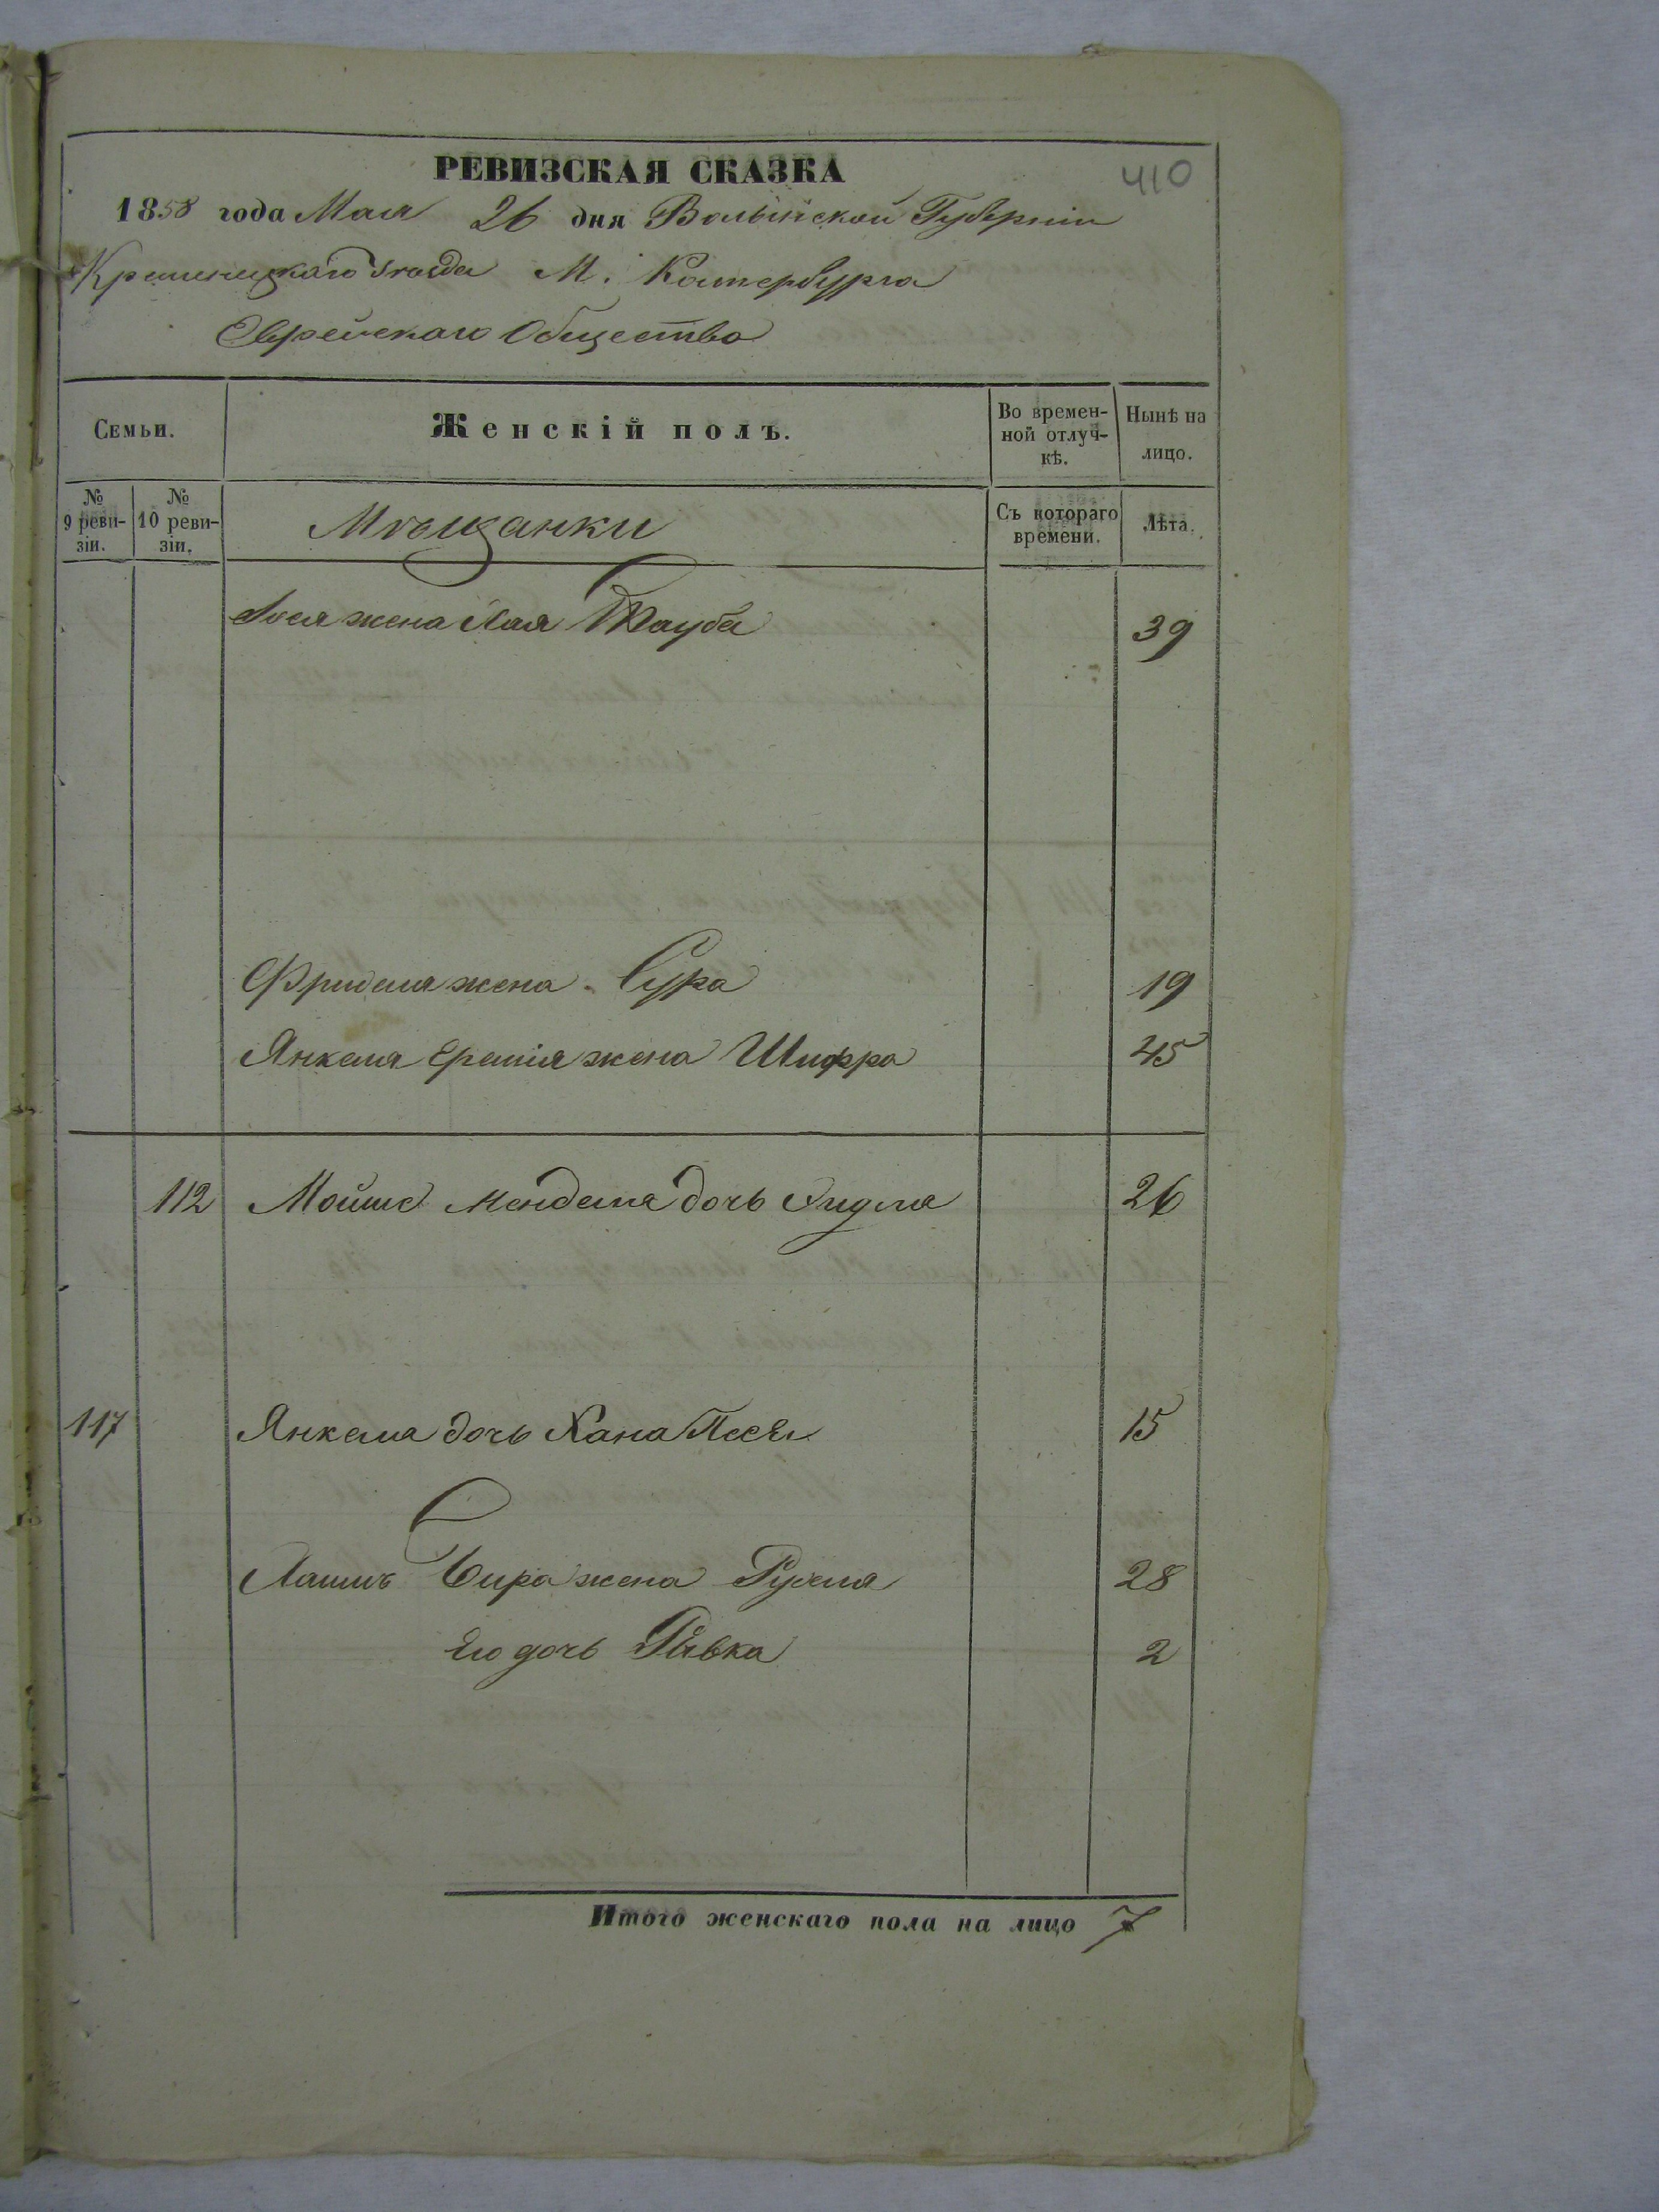 РЕВИЗСКАЯ СКАЗКА
410
1858 года Мая 26 дня Волынской Губерніи
Кременецкаго уѣзда М. Катербурга
Еврейскаго Общества
Семьи.
Женскій полъ.
Во времен-
ной отлуч-
кѣ.
Нынѣ на
лицо.
№
9 реви-
зіи.
№
10 реви-
зіи.
Мѣщанки
Съ котораго
времени.
Лѣта.
жена Хая Тауба 39
Фроима жена Сура 19
Янкеля жена Шифра 45
112 Мойше Менделя дочь 26
117 Янкеля дочь Хана Песя 15
жена Рухля 28
Его дочь Рывка 2
Итого женскаго пола на лицо 7